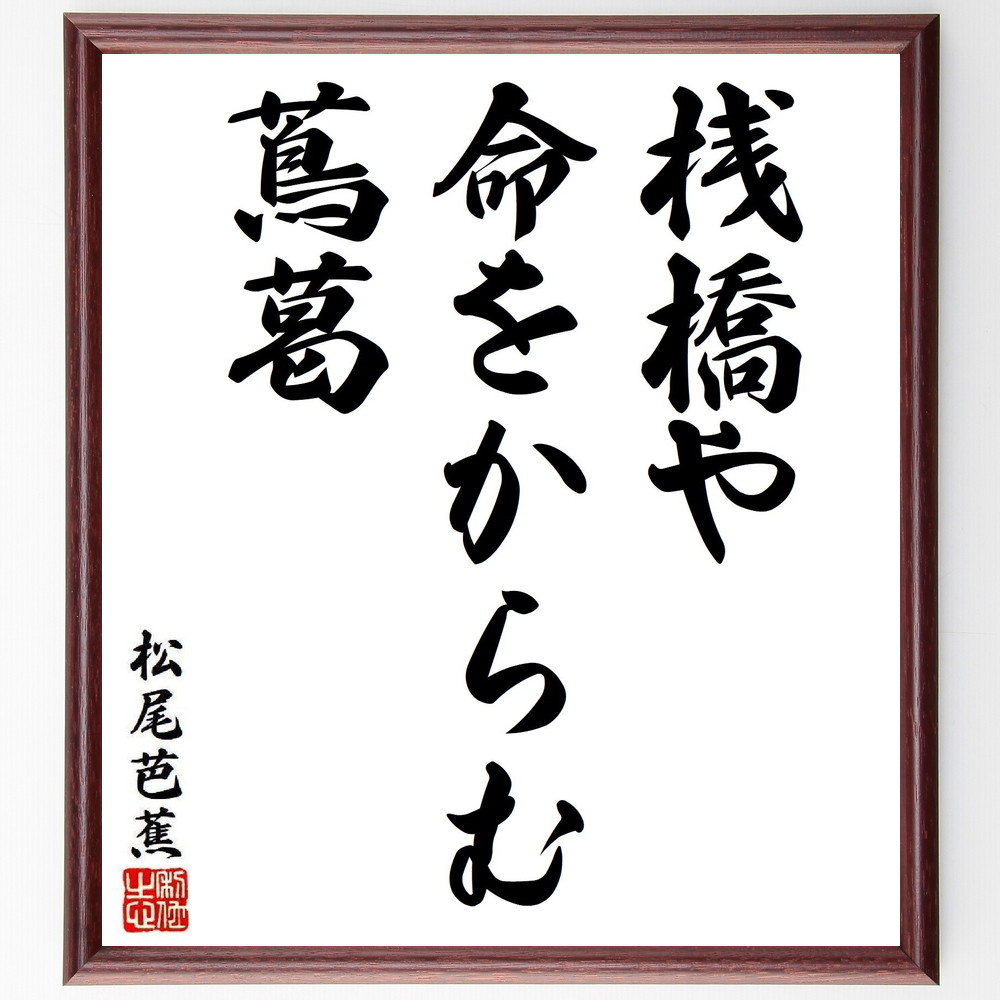 桟橋や
命をからむ
蔦葛
松尾芭蕉